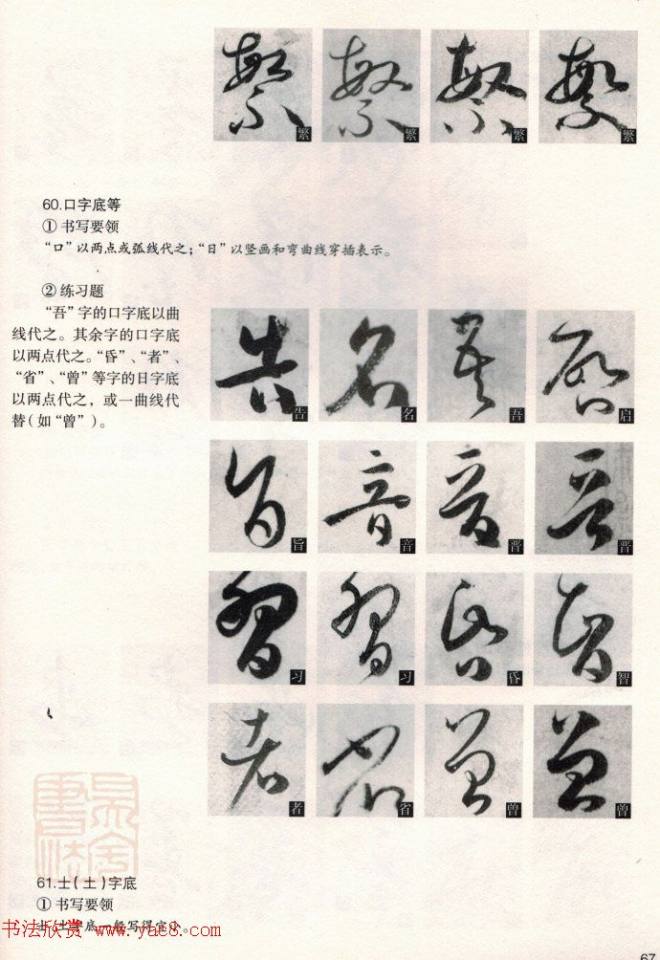 繁 繁 繁 繁
60.口字底等
①书写要领
“口”以两点或弧线代之;“日”以竖画和弯曲线穿插表示。
②练习题
“吾”字的口字底以曲
线代之。其余字的口字底
以两点代之。“昏”、“者”、
“省”、“曾”等字的日字底
以两点代之,或一曲线代
替(如“曾”)。
告 名 吾 启
旨 音 晋 晋
习 习 昏 智
者 省 曾 曾
61.士(土)字底
①书写要领
书法欣赏 www.yac8.com
67